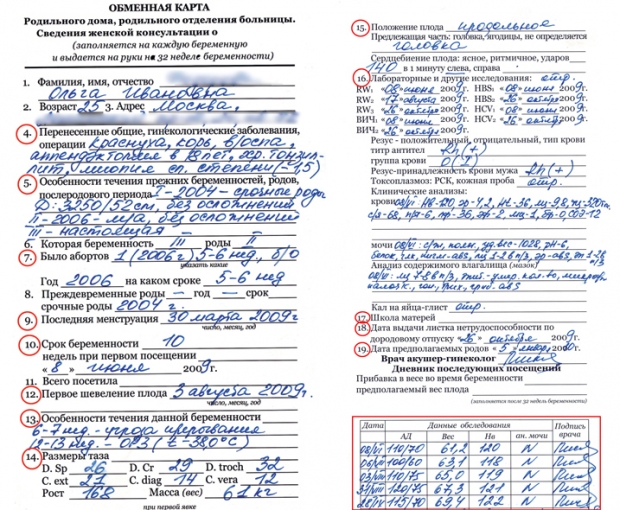 ОБМЕННАЯ КАРТА
Родильного дома, родильного отделения больницы.
Сведения женской консультации о
(заполняется на каждую беременную
и выдается на руки на 32 неделе беременности)
1. Фамилия, имя, отчество
Ольга Ивановна
2. Возраст 25 3. Адрес Москва.
4. Перенесенные общие, гинекологические заболевания,
операции краснуха, корь, в/оспа,
аппендэктомия в 13 лет, хр. тонзил-
лит, миопия сл. степени
5. Особенности течения прежних беременностей, родов,
послеродового периода I-2004 - срочные роды
3250/52см, без осложнений
II-2006 - м/а, без осложнений
III - настоящая
6. Которая беременность III роды II
7. Было абортов 1 (2006г) 5-6 нед, б/о
указать какие
Год 2006 на каком сроке 5-6 нед
8. Преждевременные роды — год — срок
срочные роды 2004 г.
9. Последняя менструация 30 марта 2009г
число, месяц, год
10. Срок беременности 10
недель при первом посещении
«8» июня 2009г.
11. Всего посетила
12. Первое шевеление плода 3 августа 2009г.
число, месяц, год
13. Особенности течения данной беременности
6-7 нед. - угроза прерывания
12-13 нед. - ОРЗ (t - 38,0°C)
14. Размеры таза
D. Sp 26 D. Cr 29 D. troch 32
C. ext 21 C. diag 14 C. vera 12
Рост 168 Масса (вес) 61 кг
при первой явке
15. Положение плода продольное
Предлежащая часть: головка, ягодицы, не определяется
головка
Сердцебиение плода: ясное, ритмичное, ударов
140 в 1 минуту слева, справа
16. Лабораторные и другие исследования: отр.
RW1 «08» июня 2009г. HBS: «08» июня 2009г.
RW2 «17» августа 2009г. HBS: «26» октября 2009г.
RW3 «26» октября 2009г. HCV: «08» июня 2009г.
ВИЧ: «08» июня 2009г. HCV: «26» октября 2009г.
ВИЧ: «26» октября 2009г.
Резус - положительный, отрицательный, тип крови
титр антител rh(+)
группа крови O(I)
Резус-принадлежность крови мужа Rh(+)
Токсоплазмоз: РСК, кожная проба отр.
Клинические анализы:
крови
мочи
Анализ содержимого влагалища (мазок)
Кал на яйца-глист отр.
17. Школа матерей
18. Дата выдачи листка нетрудоспособности по
дородовому отпуску «26» октября 2009г.
19. Дата предполагаемых родов «5» января 2010г.
Врач акушер-гинеколог
Дневник последующих посещений
Прибавка в весе во время беременности
предполагаемый вес плода
(заполняется после 32 недель беременности)
Дата Данные обследования Подпись врача
АД Вес Нв ан. мочи
110/70 61,2 120 N
100/60 63,4 118 N
110/75 65,0 119 N
120/75 67,3 121 N
115/70 69,4 122 N